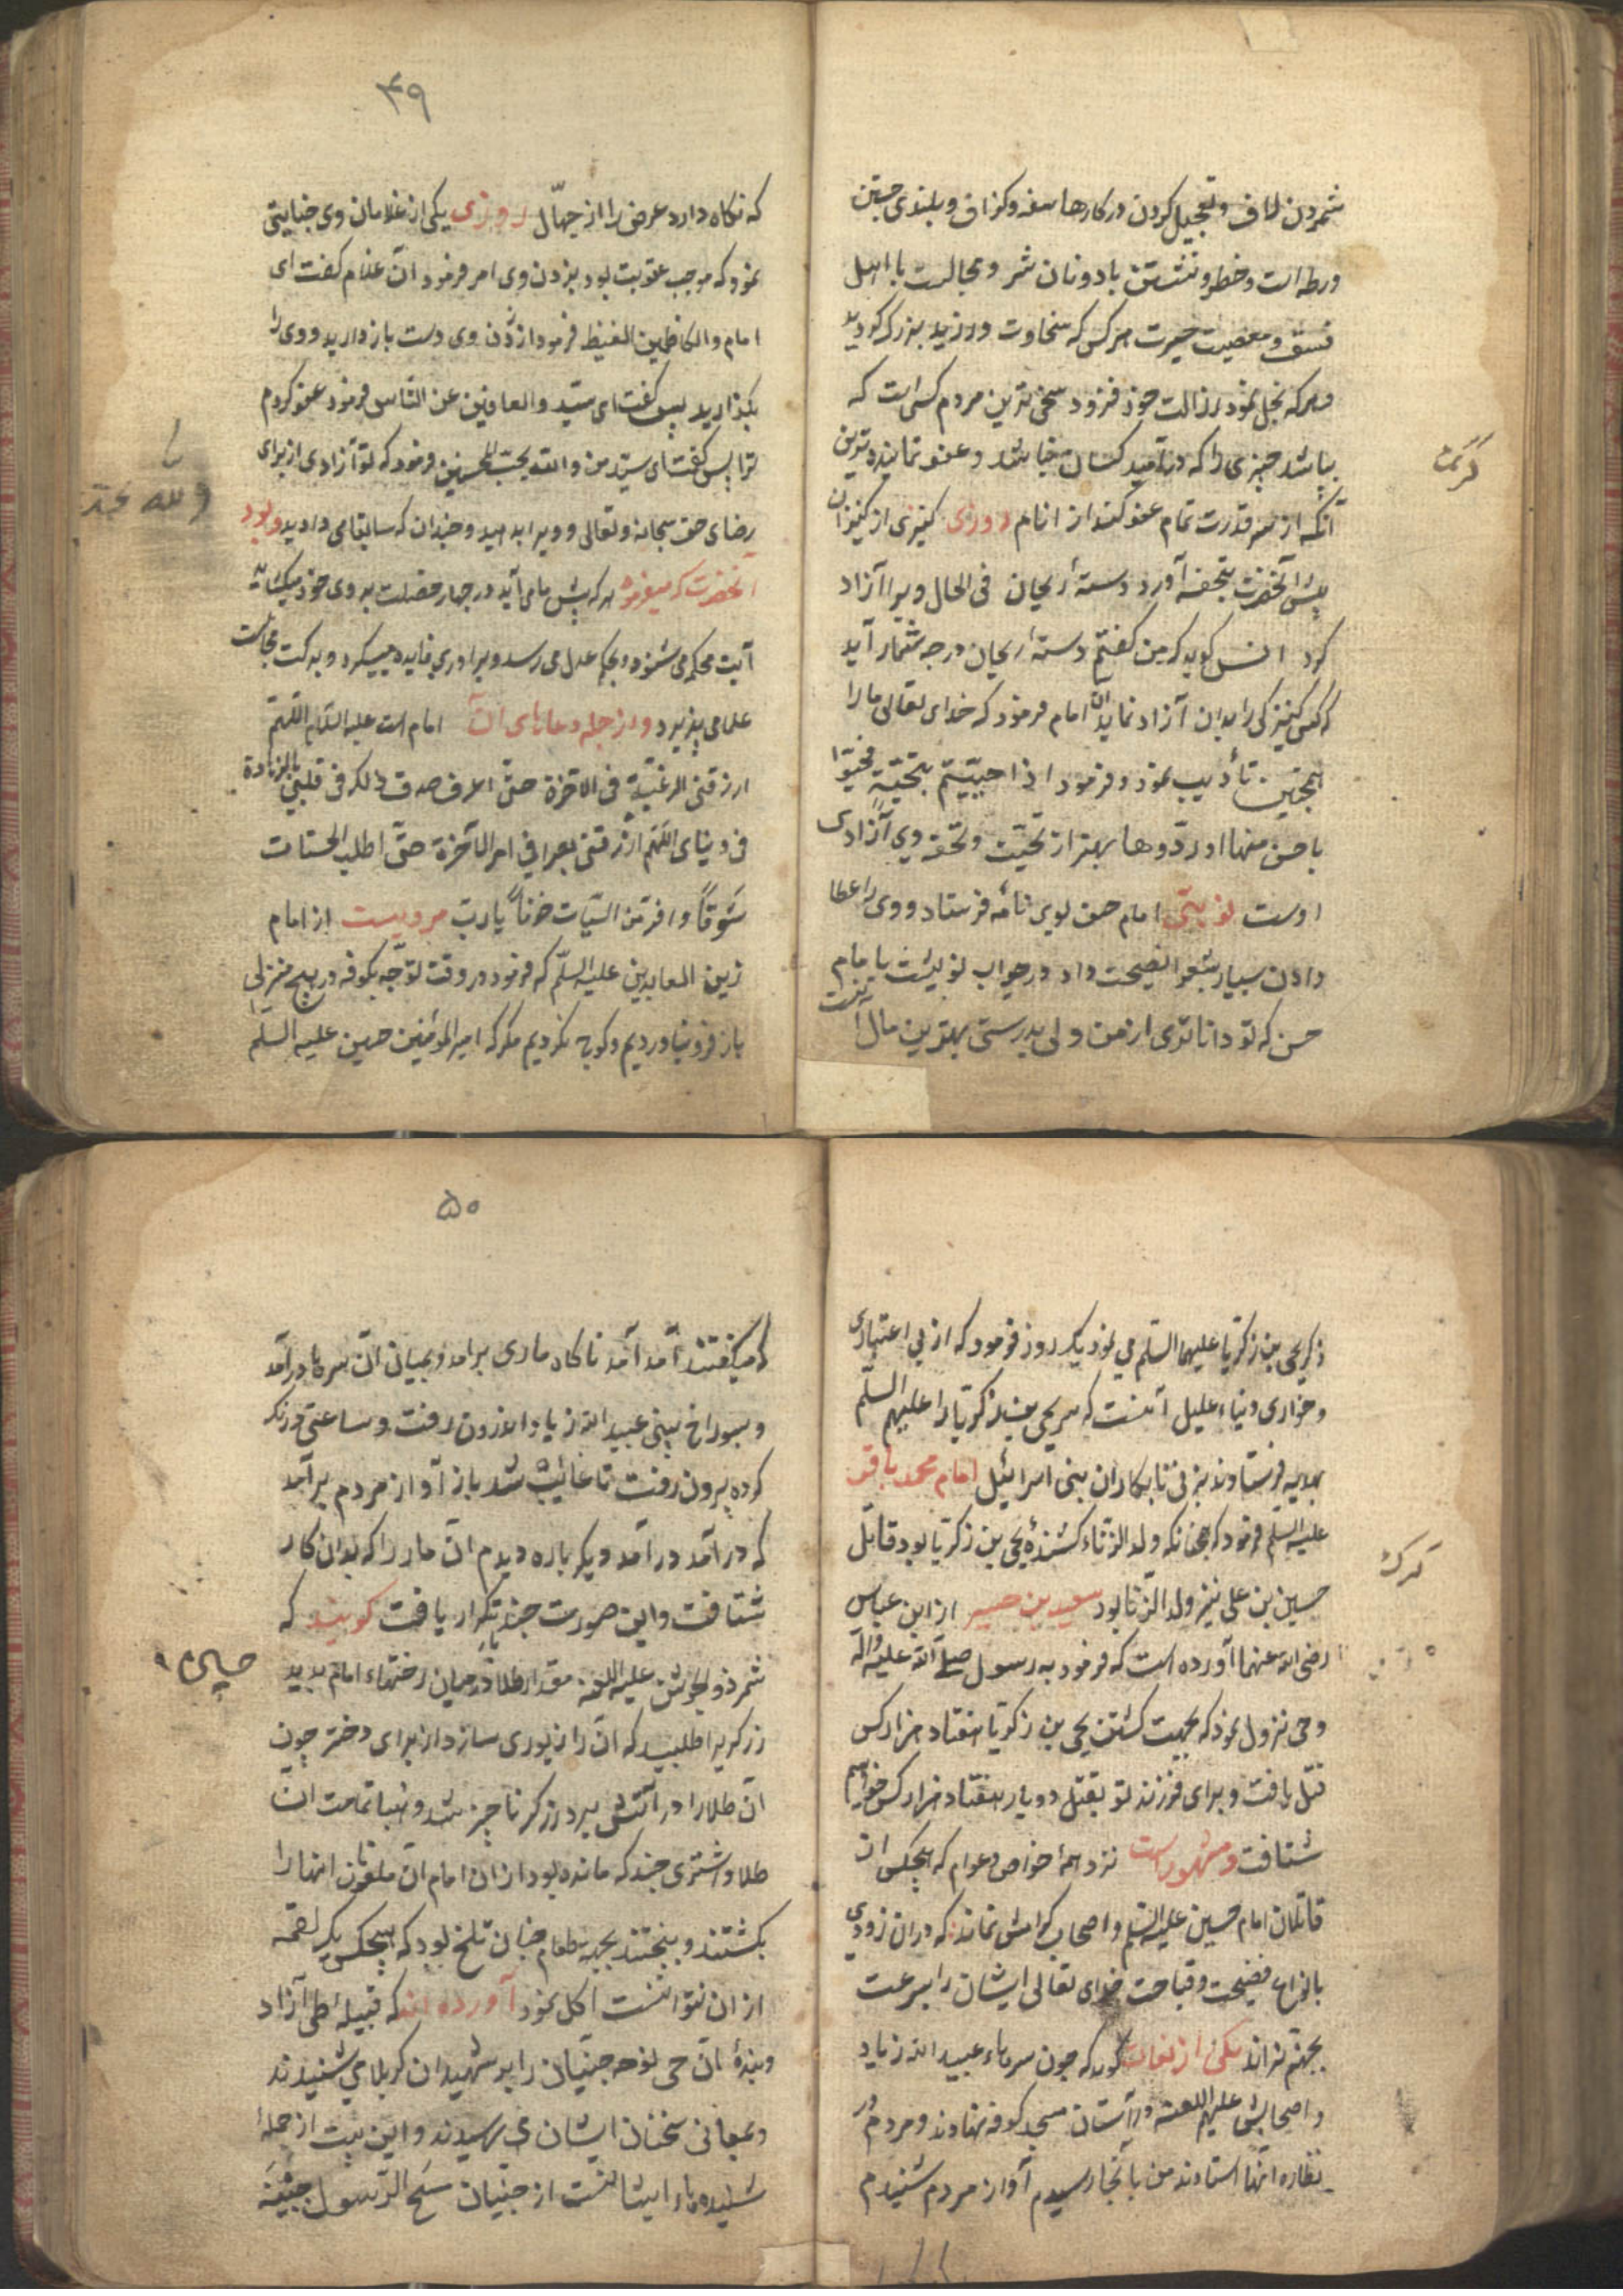 شمردن لاف و تعجیل کردن در کارها سفه و کزاف و بلندی جستن
ورطه است و خطر و نشستن با دونان شر و مجالست با اهل
فسق و معصیت حیرت هر کس که سخاوت ورزید بزرک کردید
و هر که بخل نمود رذالت خود فزود سخی ترین مردم کسی است که
بباشد چیزی را که در امید کسان نباشد و عفو نماینده ترین
آنکه از سر قدرت تمام عفو کند از انام روزی کنیزی از کنیزان
پیش آنحضرت بتحفه آورد دستهٔ ریحان فی الحال ویرا آزاد
کرد انس کوید که من کفتم دستهٔ ریحان در چه شمار آید
که کس کنیزکی را بدان آزاد نماید امام فرمود که خدای تعالی ما را
همچنین تأدیب نمود و فرمود اذا حییتم بتحیة فحیوا
باحسن منها او ردوها بهتر از تحیت و تحفه وی آزادی
اوست نوبتی امام حسن بوی نامه فرستاد و وی را عطا
دادن بسیار بشعرا نصیحت داد در جواب نوشت یا امام
حسن که تو داناتری از من ولی بدرستی بهترین مال آنست
کرمت
۴۹
که نکاه دارد عرض را از جهّال روزی یکی از غلامان وی جنایتی
نمود که موجب عقوبت بود بزدن وی امر فرمود آن غلام کفت ای
امام والکاظمین الغیظ فرمود از زدن وی دست باز دارید و وی را
بکذارید پس کفت ای سید والعافین عن الناس فرمود عفو کردم
ترا پس کفت ای سید من والله یحب المحسنین فرمود که تو آزادی از برای
رضای حق سبحانه و تعالی و ویرا بدهید دو چندان که سابقا می دادید و بود
آنحضرت که میفرمود هر که پیش ما می آید در چهار خصلت بروی خود میکشاید
آیت محکمه می شنود و بحکم عدل می رسد و برادری فایده میکیرد و برکت مجالست
علما می پذیرد و از جمله دعاهای آن امام است علیه السلام اللهم
ارزقنی الرغبة فی الآخرة حتی اعرف صدق ذلک فی قلبی بالزهادة
فی دنیای اللهم ارزقنی بصرا فی امر الآخرة حتی اطلب الحسنات
شوقاً و افر من السیئات خوفاً یا رب مرویست از امام
زین العابدین علیه السلم که فرمود در وقت توجه بکوفه در هیچ منزلی
باز فرو نیاوردیم و کوچ نکردیم مکر که امیر المؤمنین حسین علیه السلم
ذکر یحیی بن زکریا علیهما السلم می نمود یک روز فرمود که از بی اعتباری
و خواری دنیاء علیل آنست که سر یحیی بن زکریا را علیهم السلم
بهدیه فرستادند بزنی نابکار از بنی اسرائیل امام محمد باقر
علیه السلم فرمود که همچنانکه ولد الزناء کشندهٔ یحیی بن زکریا بود قاتل
حسین بن علی نیز ولد الزنا بود سعید بن جبیر از ابن عباس
رضی الله عنهما آورده است که فرمود به رسول صلی الله علیه و آله
وحی نزول نمود که بجهت کشتن یحیی بن زکریا هفتاد هزار کس
قتل یافت و برای فرزند تو بقتل دو بار هفتاد هزار کس خواهم
شتافت و مشهور است نزد همهٔ خواص و عوام که هیچکس از
قاتلان امام حسین علیه السلم و اصحاب کرامش نماند که در آن زودی
بانواع فضیحت و قباحت خدای تعالی ایشان را بسرعت
بجهنم نراند یکی از ثقات کوید که چون سرهاء عبید الله زیاد
و اصحابش علیهم اللعنه در آستان مسجد کوفه نهادند و مردم در
نظاره آنها استادند من بآنجا رسیدم آواز مردم شنیدم
۵۰
که میکفتند آمد آمد ناکاه ماری برآمد و بمیان آن سرها درآمد
و بسوراخ بینی عبید الله زیاد اندرون رفت و ساعتی درنک
کرده بیرون رفت تا غایب شد باز آواز مردم برآمد
که درآمد درآمد دیکر باره دیدم آن مار را که بدان کار
شتافت و این صورت چند بار تکرار یافت کویند که
شمر ذو الجوشن علیه اللعنه مقدار طلا در میان رختهاء امام بدید
زرکر را طلبید که آن را زیوری سازد از برای دختر چون
آن طلا را در آتش برد زرکر ناچیز شد و هباء تمامت آن
طلا و اشتری چند که مانده بود از آن امام آن ملعونان آنها را
بکشتند و پختند بجهت طعام چنان تلخ بود که هیچکس یک لقمه
از آن نتوانست اکل نمود آورده اند که قبیلهٔ طی آزاد
و بندهٔ آن حی نوحه جنیان را بر شهیدان کربلا می شنیدند
و بمعانی سخنان ایشان می رسیدند و این بیت از جملهٔ
شنیده‌هاء ایشانست از جنیان مسح الرسول جبینه